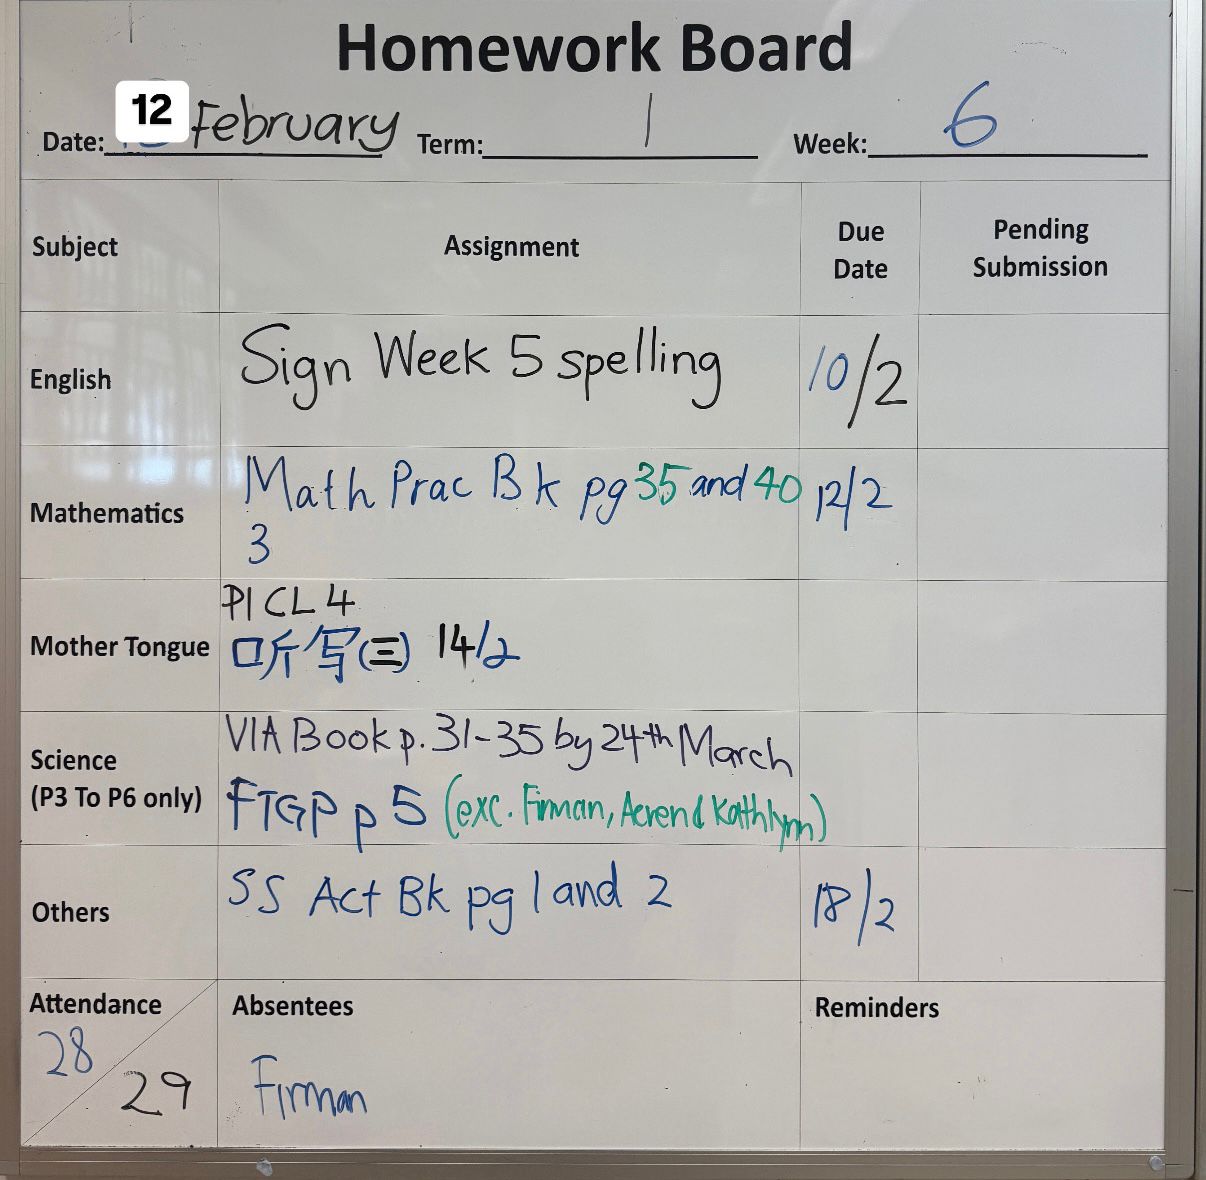 Homework Board
Date: 12 February Term: 1 Week: 6
Subject Assignment Due Date Pending Submission
English Sign Week 5 spelling 10/2
Mathematics Math Prac Bk pg 35 and 40 12/2
3
Mother Tongue PICL 4
听写(三) 14/2
Science (P3 To P6 only) VIA Book p. 31-35 by 24th March
FTGP p 5 (exc. Firman, Aeren d Kathlynn)
Others SS Act Bk pg 1 and 2 18/2
Attendance Absentees Reminders
28
29 Firman